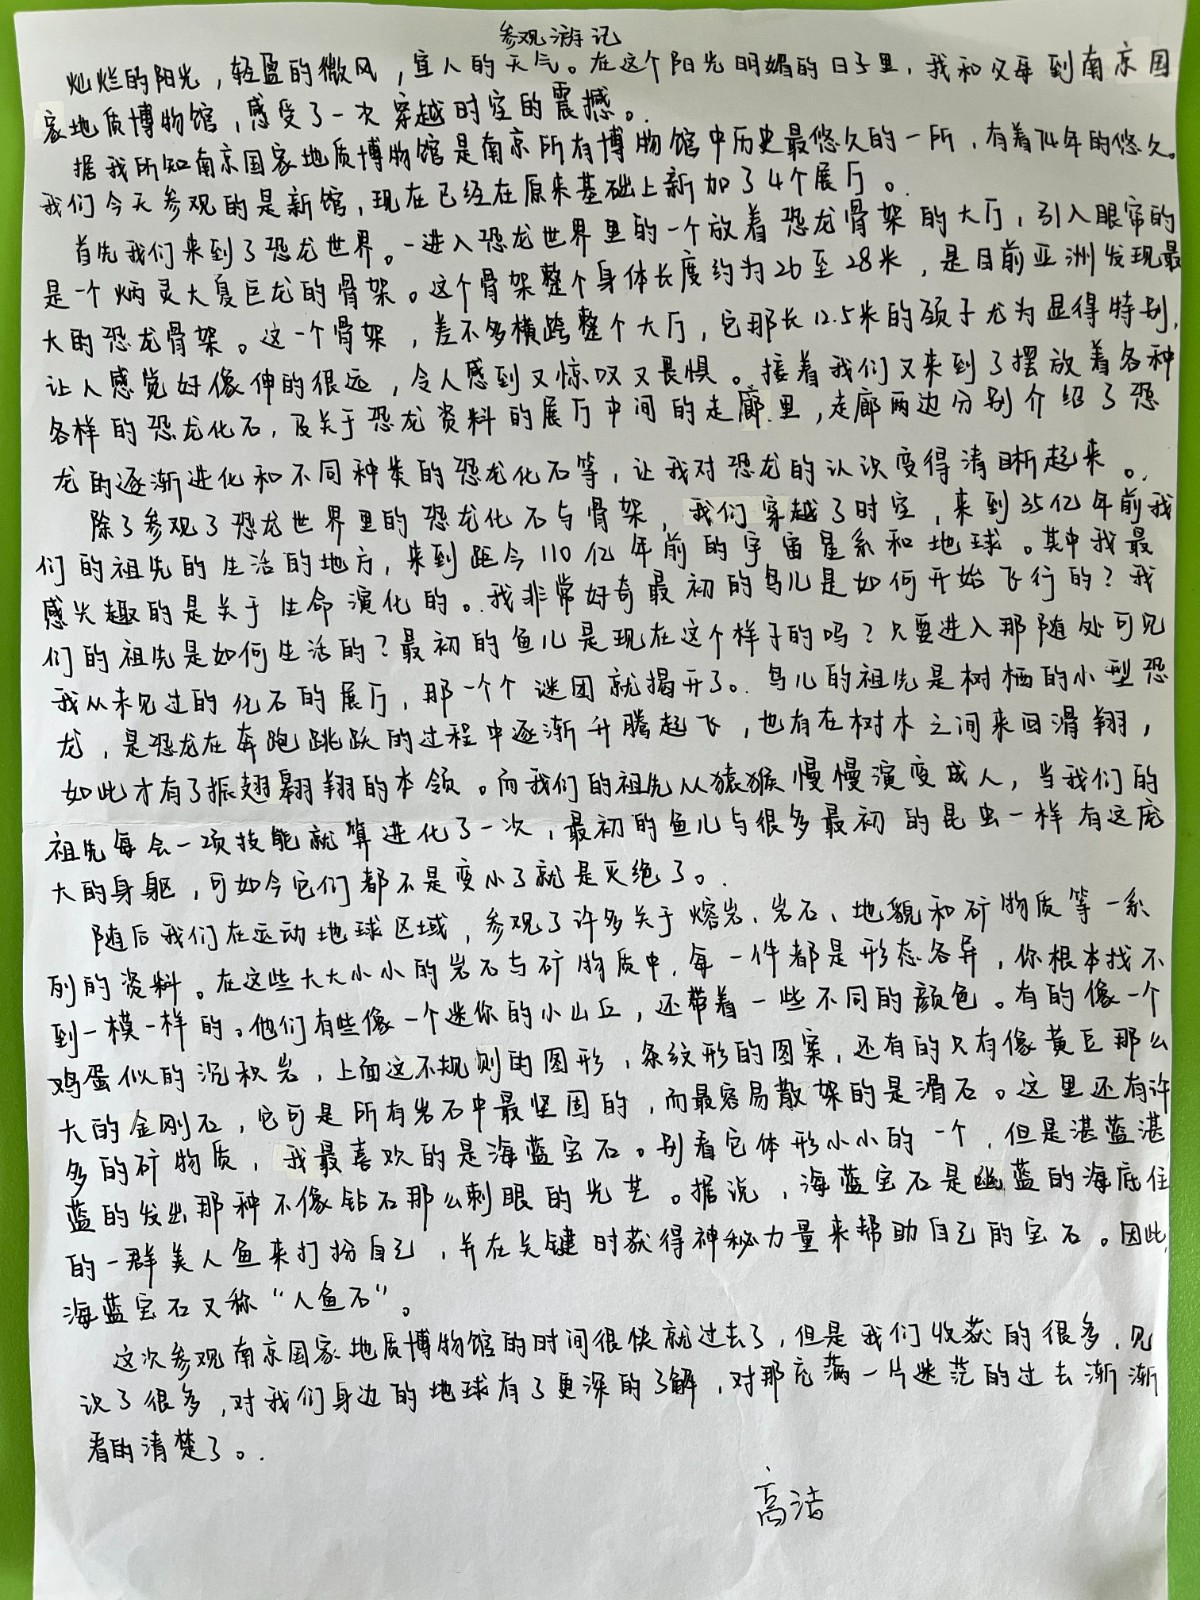 参观游记
灿烂的阳光，轻盈的微风，宜人的天气。在这个阳光明媚的日子里，我和父母到南京国
家地质博物馆，感受了一次穿越时空的震撼。
据我所知南京国家地质博物馆是南京所有博物馆中历史最悠久的一所，有着74年的悠久。
我们今天参观的是新馆，现在已经在原来基础上新加了4个展厅。
首先我们来到了恐龙世界。一进入恐龙世界里的一个放着恐龙骨架的大厅，引入眼帘的
是一个炳灵大夏巨龙的骨架。这个骨架整个身体长度约为26至28米，是目前亚洲发现最
大的恐龙骨架。这一个骨架，差不多横跨整个大厅，它那长12.5米的颈子尤为显得特别，
让人感觉好像伸的很远，令人感到又惊叹又畏惧。接着我们又来到了摆放着各种
各样的恐龙化石，及关于恐龙资料的展厅中间的走廊里，走廊两边分别介绍了恐
龙的逐渐进化和不同种类的恐龙化石等，让我对恐龙的认识变得清晰起来。
除了参观了恐龙世界里的恐龙化石与骨架，我们穿越了时空，来到35亿年前我
们的祖先的生活的地方，来到距今110亿年前的宇宙星系和地球。其中我最
感兴趣的是关于生命演化的。我非常好奇最初的鸟儿是如何开始飞行的？我
们的祖先是如何生活的？最初的鱼儿是现在这个样子的吗？只要进入那随处可见
我从未见过的化石的展厅，那一个个谜团就揭开了。鸟儿的祖先是树栖的小型恐
龙，是恐龙在奔跑跳跃的过程中逐渐升腾起飞，也有在树木之间来回滑翔，
如此才有了振翅翱翔的本领。而我们的祖先从猿猴慢慢演变成人，当我们的
祖先每会一项技能就算进化了一次，最初的鱼儿与很多最初的昆虫一样有这庞
大的身躯，可如今它们都不是变小了就是灭绝了。
随后我们在运动地球区域，参观了许多关于熔岩、岩石、地貌和矿物质等一系
列的资料。在这些大大小小的岩石与矿物质中，每一件都是形态各异，你根本找不
到一模一样的。他们有些像一个迷你的小山丘，还带着一些不同的颜色。有的像一个
鸡蛋似的沉积岩，上面这不规则的图形，条纹形的图案，还有的只有像黄豆那么
大的金刚石，它可是所有岩石中最坚固的，而最容易散架的是滑石。这里还有许
多的矿物质，我最喜欢的是海蓝宝石。别看它体形小小的一个，但是湛蓝湛
蓝的发出那种不像钻石那么刺眼的光芒。据说，海蓝宝石是幽蓝的海底住
的一群美人鱼来打扮自己，并在关键时获得神秘力量来帮助自己的宝石。因此，
海蓝宝石又称“人鱼石”。
这次参观南京国家地质博物馆的时间很快就过去了，但是我们收获的很多，见
识了很多，对我们身边的地球有了更深的了解，对那充满一片迷茫的过去渐渐
看的清楚了。
高洁